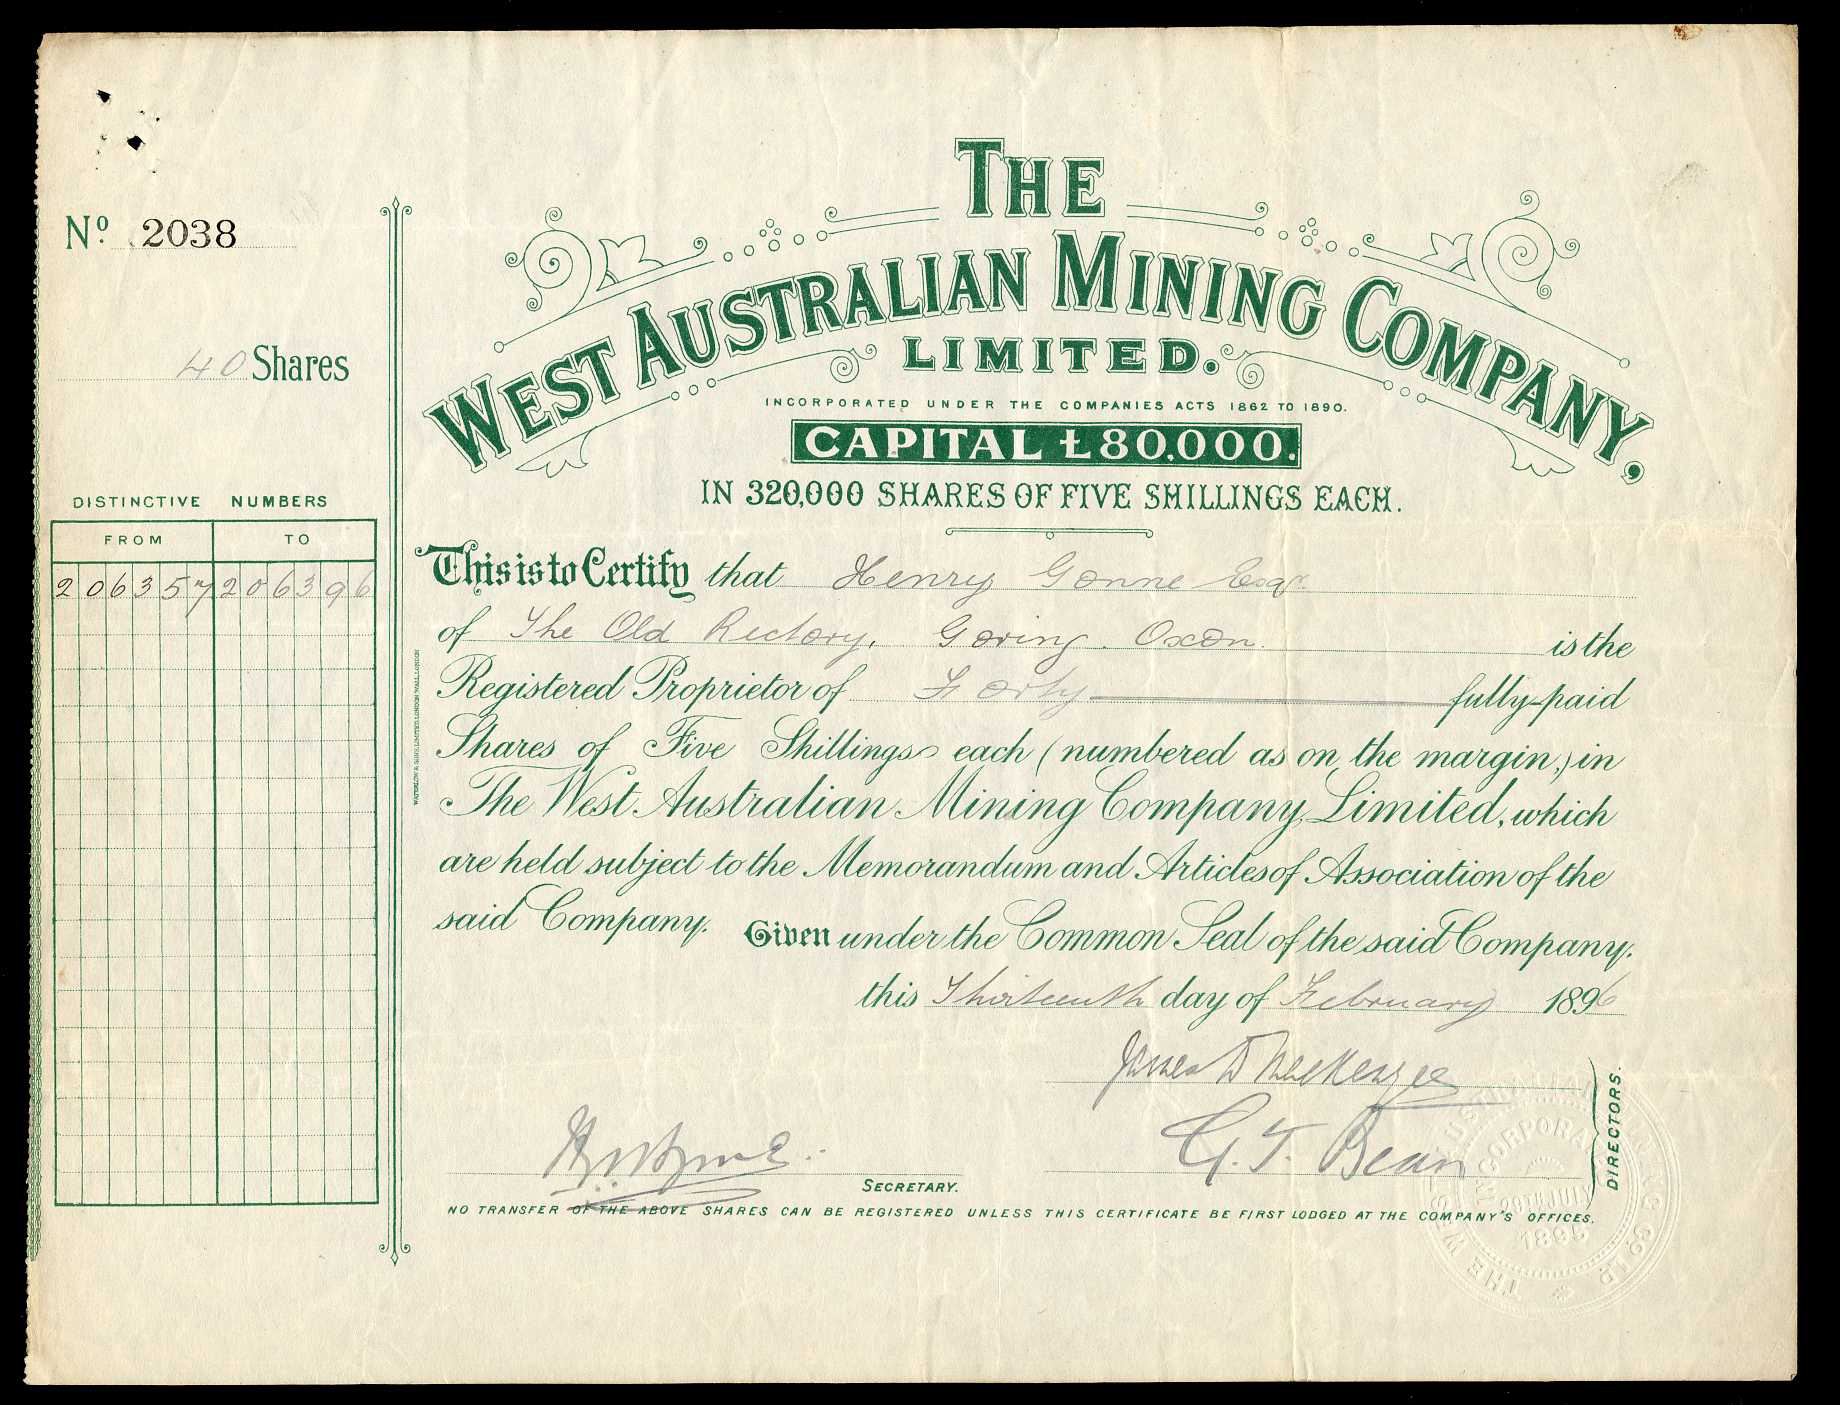 No. 2038
40 Shares
DISTINCTIVE NUMBERS
FROM TO
206357 206396
THE
WEST AUSTRALIAN MINING COMPANY,
LIMITED.
INCORPORATED UNDER THE COMPANIES ACTS 1862 TO 1890.
CAPITAL £80,000.
IN 320,000 SHARES OF FIVE SHILLINGS EACH.
This is to Certify that Henry Gonne Esqr.
of The Old Rectory, Goring. Oxon. is the
Registered Proprietor of Forty fully-paid
Shares of Five Shillings each (numbered as on the margin,) in
The West Australian Mining Company, Limited, which
are held subject to the Memorandum and Articles of Association of the
said Company. Given under the Common Seal of the said Company.
this Thirteenth day of February 1896
James D Mackenzie
G. T. Bean
DIRECTORS.
SECRETARY.
NO TRANSFER OF THE ABOVE SHARES CAN BE REGISTERED UNLESS THIS CERTIFICATE BE FIRST LODGED AT THE COMPANY'S OFFICES.
WATERLOW & SONS LIMITED, LONDON WALL, LONDON